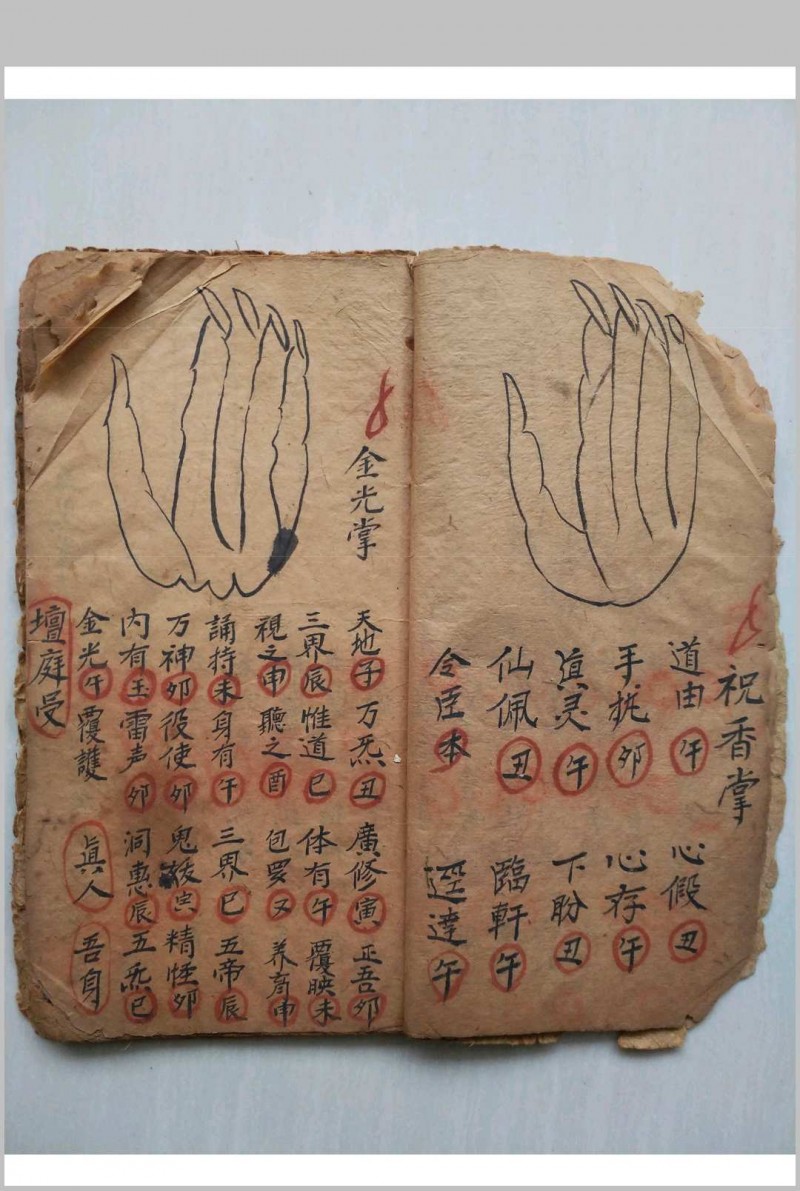 祝香掌
道由午 心假丑
手扰卯 心存午
真灵午 下盼丑
仙佩丑 臨軒午
令臣本 逕達午
金光掌
天地子 万炁丑 廣修寅 正吾卯
三界辰 惟道巳 体有午 覆映未
視之申 聽之酉 包罗又 养育申
誦持未 身有午 三界巳 五帝辰
万神卯 役使卯 鬼 寅 精怪卯
内有玉 雷声卯 洞惠辰 五炁巳
金光午 覆護 真人 吾身
壇庭受